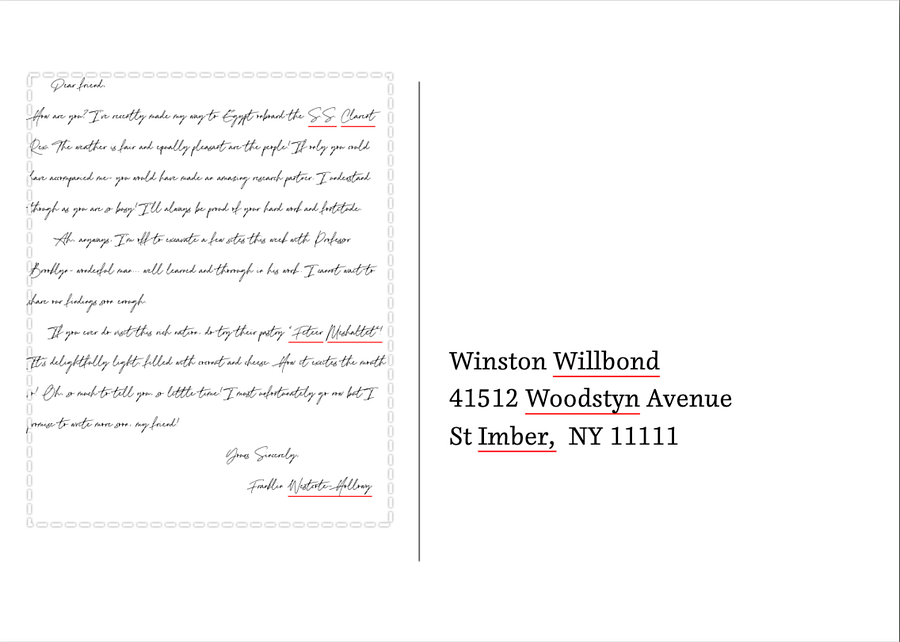 Dear friend,
How are you? I've recently made my way to Egypt onboard the S.S. Clarent
Rex. The weather is fair and equally pleasant are the people! If only you could
have accompanied me- you would have made an amazing research partner. I understand
though as you are so busy! I'll always be proud of your hard work and fortitude.
Ah, anyways, I'm off to excavate a few sites this week with Professor
Brooklyn- wonderful man... well learned and thorough in his work. I cannot wait to
share our findings soon enough.
If you ever do visit this rich nation, do try their pastry "Feteer Meshaltet"!
It's delightfully light, filled with coconut and cheese. How it excites the mouth
Oh, so much to tell you, so little time! I must unfortunately go now but I
promise to write more soon, my friend!
Yours Sincerely,
Franklin
Winston Willbond
41512 Woodstyn Avenue
St Imber, NY 11111